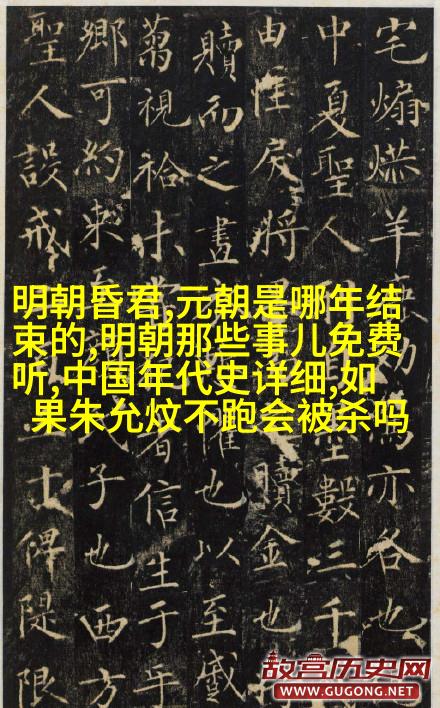 宅煽羊焉亦各也
中夏聖人聖數三千
由性戾將贖金也
贖而之盡也以至戲
視者信生于
鄉可約束子也西方
聖人設戒士俾隄限
明朝昏君,元朝是哪年结
束的,明朝那些事儿免费
听,中国年代史详细,如
果朱允炆不跑会被杀吗
故宫历史网
WWW.GUGONG.NET